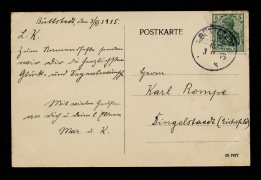 Büttstedt, den 3/8 1915.
L. K.
Zum Namensfeste senden
wir dir die herzlichsten
Glück- und Segenswünsche
Mit vielen Grüßen
an dich u deine l. Eltern
Mar. u. K.
POSTKARTE
Herrn
Karl Rompe
Dingelstaedt (Eichsfeld)